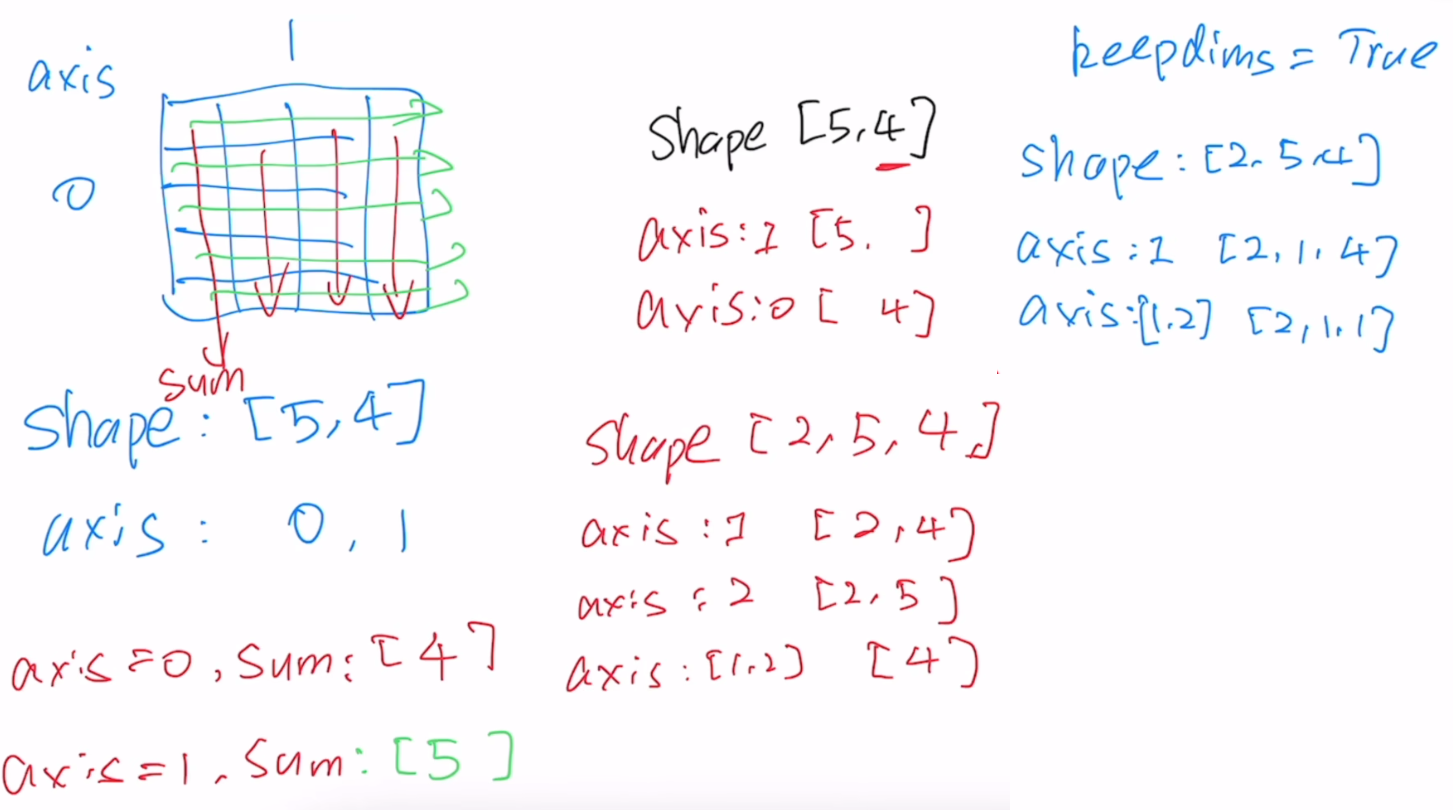 1
axis
0
sum
shape: [5,4]
axis: 0, 1
axis=0, sum: [4]
axis=1, sum: [5 ]
Shape [5,4]
axis:1 [5. ]
axis:0 [ 4]
shape [2,5,4]
axis:1 [2,4]
axis:2 [2,5]
axis:[1,2] [4]
keepdims = True
shape: [2.5.4]
axis:1 [2,1,4]
axis:[1.2] [2,1,1]